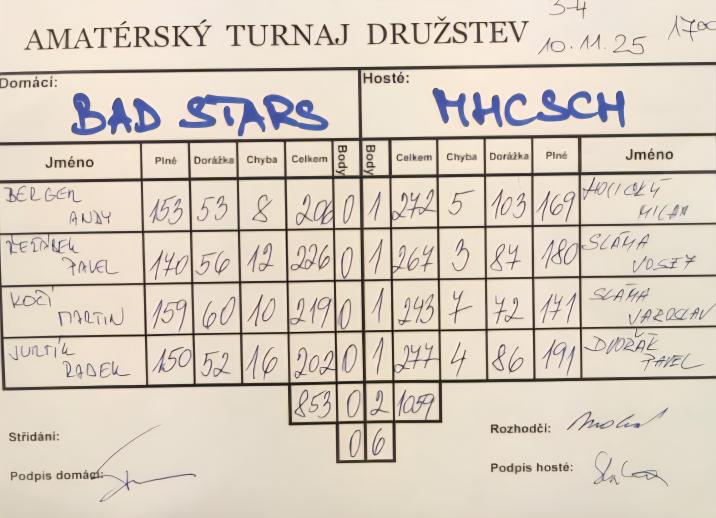 3-4
AMATÉRSKÝ TURNAJ DRUŽSTEV 10.11.25 17⁰⁰
Domácí: Hosté:
BAD STARS MHCSCH
Jméno Plné Dorážka Chyba Celkem Body Body Celkem Chyba Dorážka Plné Jméno
BERGER ANDY 153 53 8 206 0 1 272 5 103 169 HOLICKÝ MILAN
PAVEL 170 56 12 226 0 1 267 3 87 180 SLÁMA
KOČÍ MARTIN 159 60 10 219 0 1 243 7 72 171 SLÁMA JAROSLAV
RADEK 150 52 16 202 0 1 277 4 86 191 DVOŘÁK PAVEL
853 0 2 1059
0 6
Střídání: Rozhodčí:
Podpis domácí: Podpis hosté: